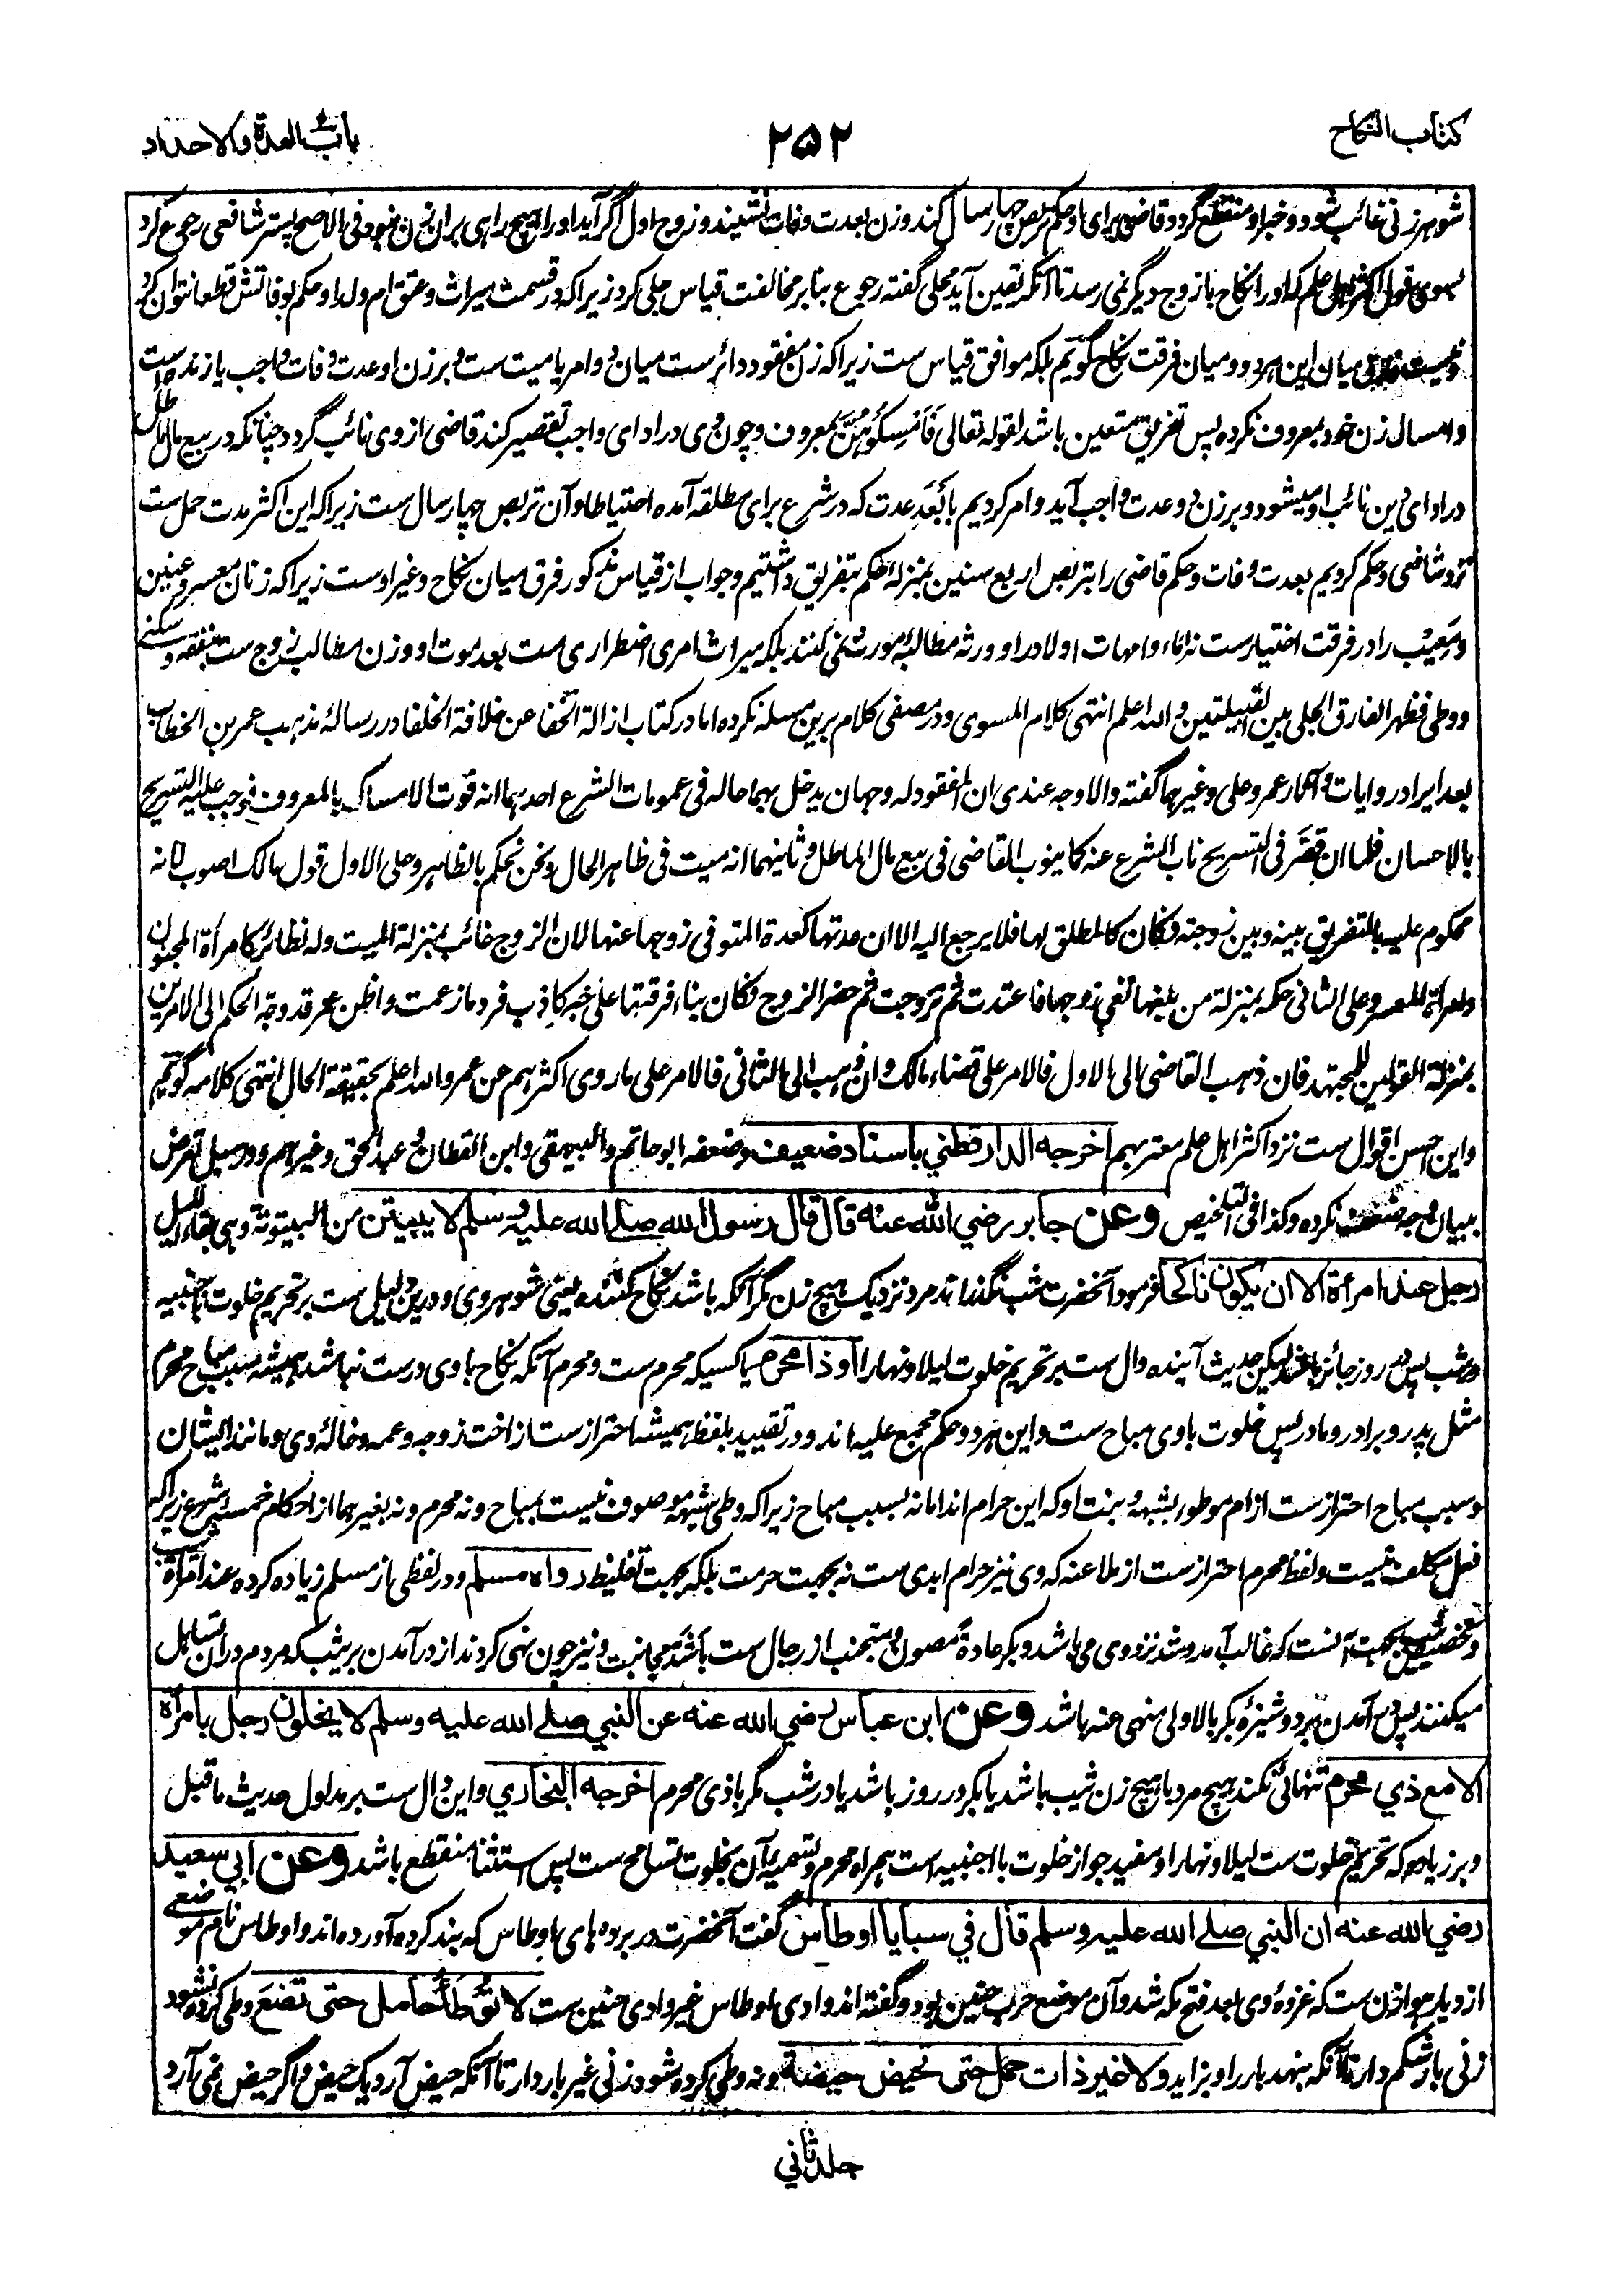 کتاب النکاح
۲۵۲
باب العدة والاحداد
شوهر زنی غائب شود و خبر او منقطع گردد قاضی برای او حکم تربص چهار سال کند و زن بعدت وفات نشیند و زوج اول اگر آید او را هیچ راهی بران زن نبود فی الاصح پستر شافعی رجوع کرد
بسوی قول اکثر اهل علم که او را نکاح با زوج دیگر نمی رسد تا آنکه یقین آید محلی گفته رجوع بنابر مخالفت قیاس جلی کرد زیرا که در قسمت میراث و عتق ام ولد او حکم بوفاتش قطعا نتوان کرد
و نیست فرق میان این هر دو و میان فرقت نکاح گویم بلکه موافق قیاس ست زیرا که زن مفقود دائر ست میان دو امر یا میت ست و بر زن او عدت وفات واجب یا زنده است
و امساک زن خود بمعروف نکرده پس تفریق متعین باشد لقوله تعالی فَأَمْسِكُوهُنَّ بمعروف و چون وی در ادای واجب تقصیر کند قاضی از وی نائب گردد چنانکه در بیع مال ماطل
در ادای دین نائب او میشود و بر زن دو عدت واجب آید و امر کردیم بأبعد عدت که در شرع برای مطلقه آمده احتیاطا و آن تربص چهار سال ست زیرا که این اکثر مدت حمل ست
نزد شافعی و حکم کردیم بعدت وفات و حکم قاضی را بتربص اربع سنین بمنزلهٔ حکم بتفریق داشتیم و جواب از قیاس مذکور فرق میان نکاح و غیر اوست زیرا که زنان معسر و عنین
و معیب را در فرقت اختیار ست نه اماء و امهات اولاد را و ورثه مطالبهٔ مورث نمی کنند بلکه میراث امری اضطراری ست بعد موت او و زن مطالب زوج ست بنفقه و سکنے
و وطی فظهر الفارق الجلی بین القبیلتین والله اعلم انتهی کلام المسوی و در مصفی کلام برین مسئله نکرده اما در کتاب ازالة الخفا عن خلافة الخلفا در رسالهٔ مذهب عمر بن الخطاب
بعد ایراد روایات و آثار عمر و علی و غیرهما گفته والاوجه عندی ان المفقود له وجهان یدخل بهما حاله فی عمومات الشرع احدهما انه فوت الامساک بالمعروف فوجب علیه التسریح
بالاحسان فلما ان قصَّر فی التسریح ناب الشرع عنه کما ینوب القاضی فی بیع مال الماطل و ثانیهما انه میت فی ظاهر الحال و نحن نحکم بالظاهر و علی الاول قول مالک اصوب لانه
محکوم علیه بالتفریق بینه و بین زوجته فکان کالمطلق لها فلا یرجع الیه الا ان عدتها کعدة المتوفی زوجها عنها لان الزوج غائب بمنزلة المیت و له نظائر کامرأة المجنون
و امرأة المعسر و علی الثانی حکمه بمنزلة من بلغها نعی زوجها فاعتدت ثم تزوجت ثم حضر الزوج فکان بناء فرقتها علی خبر کاذب فرد ما زعمت و اظن عمر قد وجه الحکم الی الامرین
بمنزلة القولین للمجتهد فان ذهب القاضی الی الاول فالامر علی قضاء مالک و ان ذهب الی الثانی فالامر علی ما روی اکثرهم عن عمر والله اعلم بحقیقة الحال انتهی کلامه گویم
و این احسن اقوال ست نزد اکثر اهل علم معتربهم اخرجه الدارقطني باسناد ضعيف و ضعفه ابو حاتم و البیهقی و ابن القطان و عبد الحق و غیرهم و در سبل تعرض
ببیان وجه ضعف نکرده و کذا فی التلخیص وعن جابر رضي الله عنه قال قال رسول الله صلے الله عليه وسلم لا يبيتن من البیتوتة و هی بقاء اللیل
رجل عند امرأة الا ان يكون ناكحا فرمود آنحضرت شب نگذراند مرد نزدیک هیچ زن مگر آنکه باشد نکاح کننده یعنی شوهر وی و درین دلیل ست بر تحریم خلوت باجنبیه
در شب پس در روز جائز باشد لیکن حدیث آینده دال ست بر تحریم خلوت لیلا و نهارا او ذا محرم یا کسیکه محرم ست و محرم آنکه نکاح با وی درست نباشد همیشه بسبب مباح محرم
مثل پدر و برادر و مادر پس خلوت با وی مباح ست و این هر دو حکم مجمع علیه اند و در تقیید بلفظ همیشه احتراز ست از اخت زوجه و عمه و خالهٔ وی و مانند ایشان
و سبب مباح احتراز ست از ام موطوء بشبهه و بنت او که این حرام اند اما نه بسبب مباح زیرا که وطی بشبهه موصوف نیست بمباح و نه محرم و نه بغیرهما از احکام خمسه شرع زیرا که
فعل مکلف نیست و لفظ محرم احتراز ست از ملاعنه که وی نیز حرام ابدی ست نه بجهت حرمت بلکه بجهت تغلیظ رواه مسلم و در لفظی از مسلم زیاده کرده عند امرأة ثیب
و تخصیص ثیب بجهت آنست که غالب آمد و شد نزد وی می باشد و بکر عادةً مصون و متجنب از رجال ست باشد مجانبت و نیز چون نهی کردند از درآمدن بر ثیب که مردم در ان تساهل
میکنند پس در آمدن بر دوشیزه بکر بالاولی منهی عنه باشد وعن ابن عباس رضي الله عنه عن النبي صلے الله عليه وسلم لا يخلون رجل بامرأة
الا مع ذي محرم تنهائی نکند هیچ مرد با هیچ زن ثیب باشد یا بکر در روز باشد یا در شب مگر با ذی محرم اخرجه البخاري و این دال ست بر مدلول حدیث ما قبل
و بر زیاده که تحریم خلوت ست لیلا و نهارا و مفید جواز خلوت با اجنبیه است همراه محرم و تسمیهٔ آن بخلوت تسامح ست پس استثنا منقطع باشد وعن ابي سعيد
رضي الله عنه ان النبي صلے الله عليه وسلم قال في سبايا اوطاس گفت آنحضرت در برده های اوطاس که بند کرده آورده اند و اوطاس نام موضعے
از دیار هوازن ست که غزوهٔ وی بعد فتح مکه شد و آن موضع حرب حنین بود و گفته اند وادی اوطاس غیر وادی حنین ست لا توطأ حامل حتى تضع وطی کرده نشود
زنی بار شکم دار تا آنکه بنهد بار را و بزاید ولا غير ذات حمل حتى تحيض حيضة و نه وطی کرده شود زنی غیر باردار تا آنکه حیض آرد یک حیض و اگر حیض نمی آرد
جلد ثاني